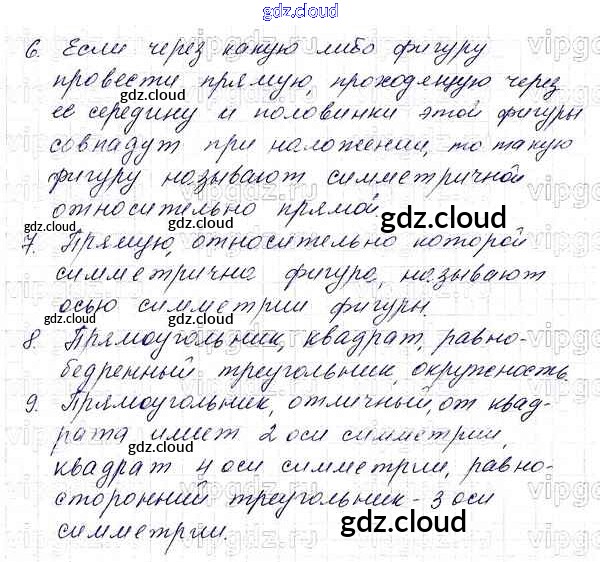 gdz.cloud
6. Если через какую либо фигуру
провести прямую, проходящую через
ее середину и половинки этой фигуры
gdz.cloud
совпадут при наложении, то такую
фигуру называют симметричной
относительно прямой.
gdz.cloud
gdz.cloud
7. Прямую, относительно которой
симметрична фигура, называют
gdz.cloud
осью симметрии фигуры.
gdz.cloud
gdz.cloud
8. Прямоугольник, квадрат, равно-
бедренный треугольник, окружность.
9. Прямоугольник, отличный, от квад-
рата имеет 2 оси симметрии,
gdz.cloud
квадрат 4 оси симметрии, равно-
сторонний треугольник - 3 оси
симметрии.
gdz.cloud